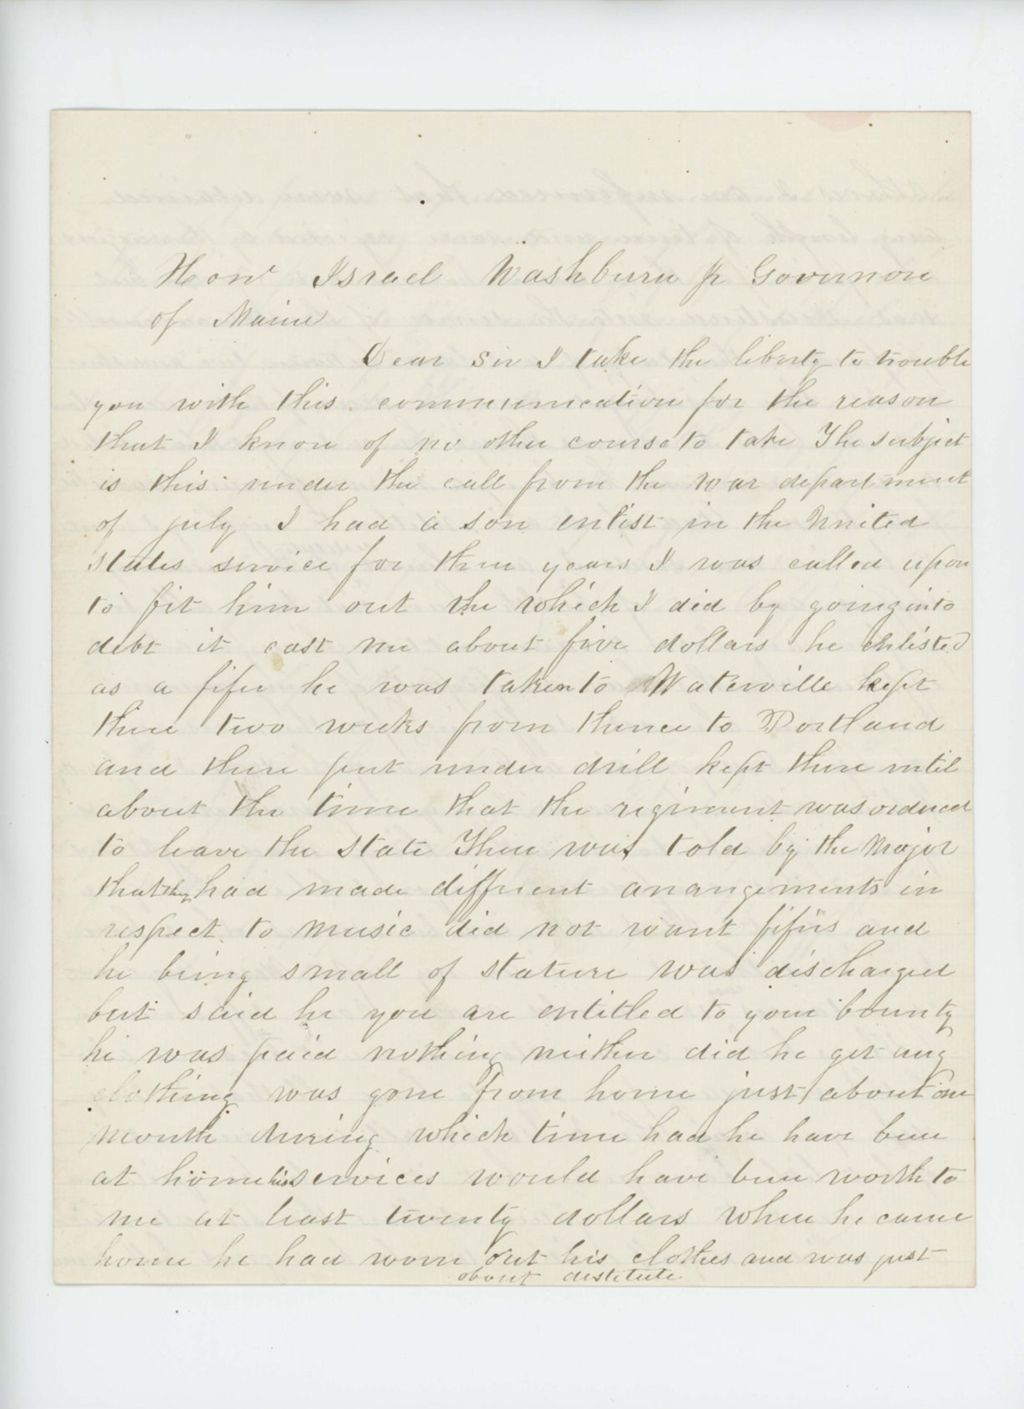 Honr Israel Washburn Jr Governor
of Maine
Dear Sir I take the liberty to trouble
you with this communication for the reason
that I know of no other course to take The subject
is this under the call from the War department
of july I had a son enlist in the United
States service for three years I was called upon
to fit him out the which I did by going into
debt it cost me about five dollars he enlisted
as a fifer he was taken to Waterville kept
there two weeks from thence to Portland
and there put under drill kept there until
about the time that the regiment was ordered
to leave the State Then was told by the Major
that they had made different arrangements in
respect to music did not want fifers and
he being small of stature was discharged
but said he you are entitled to your bounty
he was paid nothing neither did he get any
clothing was gone from home just about one
month during which time had he have been
at home his services would have been worth to
me at least twenty dollars when he came
home he had worn out his clothes and was just
about destitute